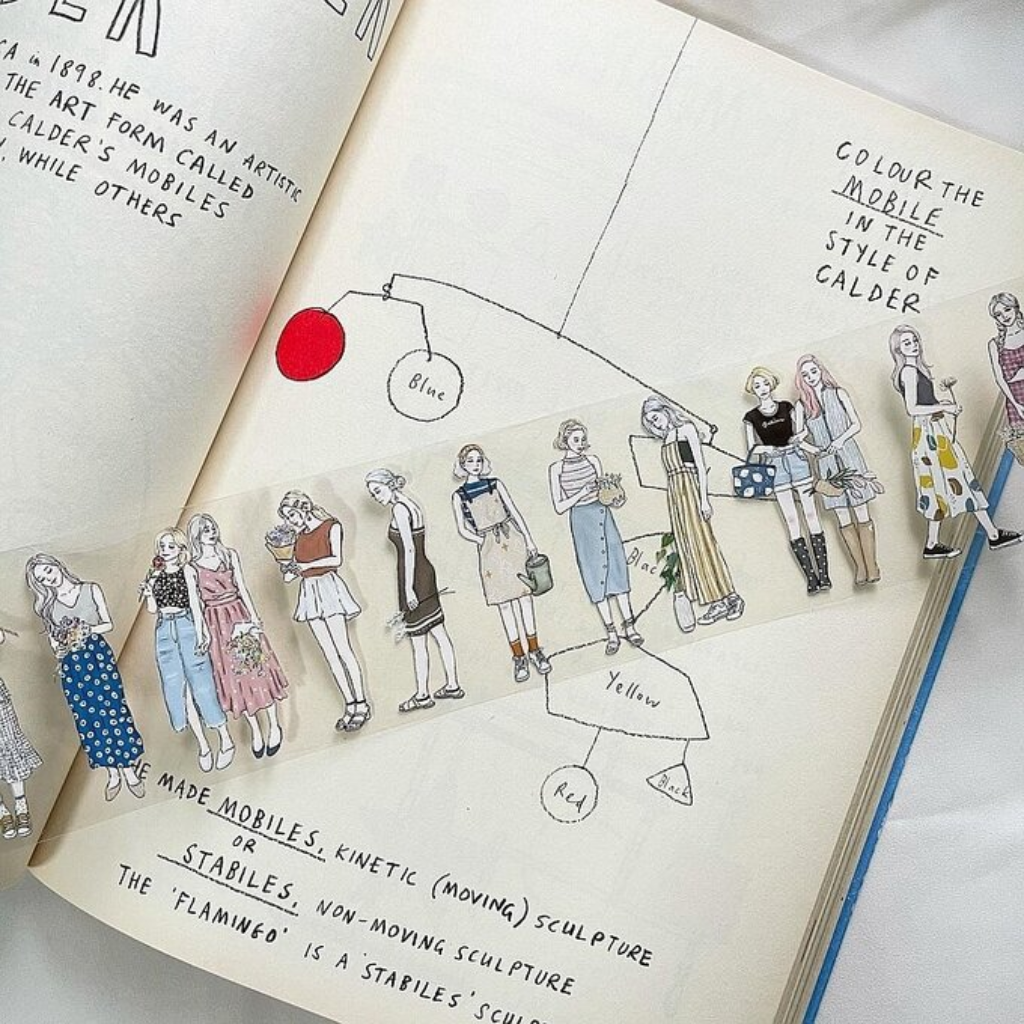 CA in 1898. HE WAS AN ARTISTIC
THE ART FORM CALLED
CALDER'S MOBILES
WHILE OTHERS
COLOUR THE
MOBILE
IN THE
STYLE OF
CALDER
Blue
Yellow
Red
Black
MADE MOBILES, KINETIC (MOVING) SCULPTURE
OR
STABILES, NON-MOVING SCULPTURE
THE 'FLAMINGO' IS A 'STABILES'